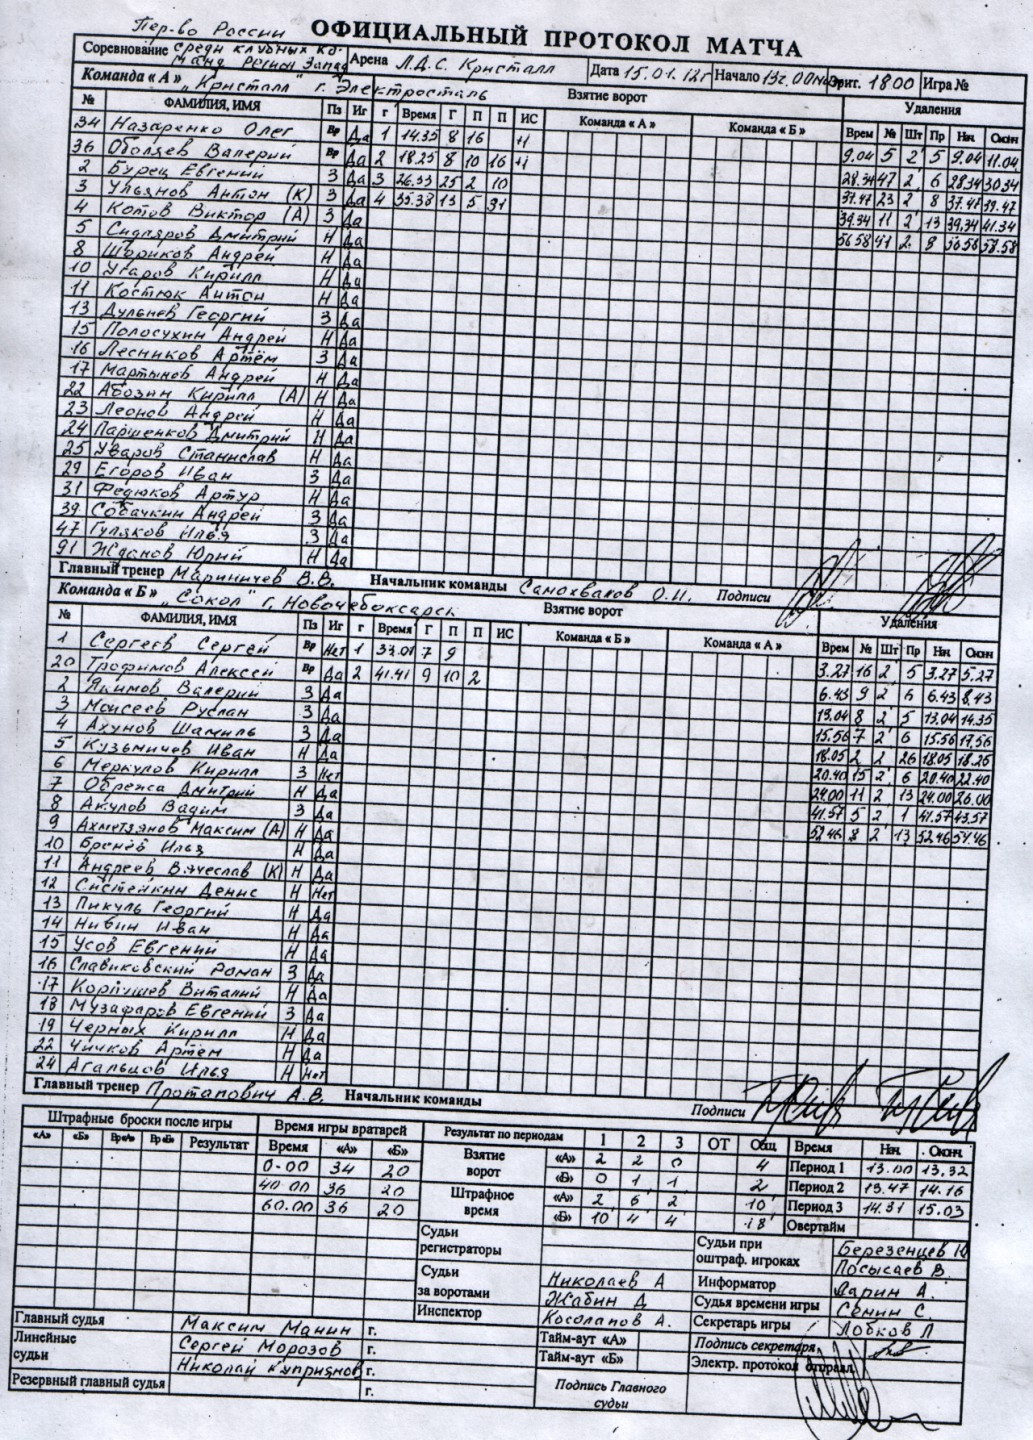 Пер-во России ОФИЦИАЛЬНЫЙ ПРОТОКОЛ МАТЧА
Соревнование среди клубных ко- манд Регион Запад Арена Л.Д.С. Кристалл Дата 15.01.12г Начало 13ч.00 Зрит. 1800 Игра №
Команда « А » „Кристалл" г. Электросталь Взятие ворот Удаления
№ ФАМИЛИЯ, ИМЯ Пз Иг г Время Г П П ИС Команда « А » Команда « Б » Врем № Шт Пр Нач Оконч
34 Назаренко Олег Вр Да 1 14.35 8 16 +1 9.04 5 2' 5 9.04 11.04
36 Оболяев Валерий Вр Да 2 18.25 8 10 16 +1 28.34 47 2 6 28.34 30.34
2 Бурец Евгений З Да 3 26.33 25 2 10 37.47 23 2 8 37.47 39.47
3 Ульянов Антон (К) З Да 4 35.38 13 5 91 39.34 11 2' 13 39.34 41.34
4 Котов Виктор (А) З Да 56.58 41 2 8 56.58 58.58
5 Сидляров Дмитрий Н Да
8 Шориков Андрей Н Да
10 Угаров Кирилл Н Да
11 Костюк Антон Н Да
13 Дульнев Георгий З Да
15 Полосухин Андрей Н Да
16 Лесников Артём З Да
17 Мартынов Андрей Н Да
22 Абозин Кирилл (А) Н Да
23 Леонов Андрей Н Да
24 Паршенков Дмитрий Н Да
25 Уваров Станислав Н Да
29 Егоров Иван З Да
31 Федюков Артур Н Да
39 Собачкин Андрей З Да
47 Гуляков Илья З Да
91 Жданов Юрий Н Да
Главный тренер Мариничев В.В. Начальник команды Самохвалов О.И. Подписи
Команда « Б » „Сокол" г. Новочебоксарск Взятие ворот Удаления
№ ФАМИЛИЯ, ИМЯ Пз Иг г Время Г П П ИС Команда « Б » Команда « А » Врем № Шт Пр Нач Оконч
1 Сергеев Сергей Вр Нет 1 33.01 7 9 3.27 16 2 5 3.27 5.27
20 Трофимов Алексей Вр Да 2 41.41 9 10 2 6.43 9 2 6 6.43 8.43
2 Якимов Валерий З Да 13.04 8 2' 5 13.04 14.35
3 Моисеев Руслан З Да 15.56 7 2' 6 15.56 17.56
4 Ахунов Шамиль З Да 18.05 2 2 26 18.05 18.25
5 Кузьмичев Иван Н Да 20.40 15 2' 6 20.40 22.40
6 Меркулов Кирилл З Нет 24.00 11 2 13 24.00 26.00
7 Обрежа Дмитрий Н Да 41.57 5 2 1 41.57 43.57
8 Акулов Вадим З Да 52.46 8 2' 13 52.46 54.46
9 Ахметзянов Максим (А) Н Да
10 Бренёв Илья Н Да
11 Андреев Вячеслав (К) Н Да
12 Систейкин Денис Н Нет
13 Пикуль Георгий Н Да
14 Нибин Иван Н Да
15 Усов Евгений Н Да
16 Славиковский Роман З Да
17 Корпушев Виталий Н Да
18 Музафаров Евгений З Да
19 Черных Кирилл Н Да
22 Чичков Артём Н Да
24 Агальцов Илья Н Нет
Главный тренер Протапович А.В. Начальник команды Подписи
Штрафные броски после игры Время игры вратарей Результат по периодам 1 2 3 ОТ Общ Время Нач. Оконч.
«А» «Б» Вр «А» Вр «Б» Результат Время «А» «Б» Взятие ворот «А» 2 2 0 4 Период 1 13.00 13.32
0-00 34 20 «Б» 0 1 1 2 Период 2 13.47 14.16
40.00 36 20 Штрафное время «А» 2 6 2 10 Период 3 14.31 15.03
60.00 36 20 «Б» 10 4 4 18 Овертайм
Судьи регистраторы Судьи при оштраф. игроках Березенцев Посысаев В.
Судьи за воротами Николаев А Жабин Д Информатор Ларин А.
Судья времени игры Сенин С.
Инспектор Косолапов А. Секретарь игры Лобков Л
Главный судья Максим Манин г. Тайм-аут «А» Подпись секретаря
Линейные судьи Сергей Морозов г. Тайм-аут «Б» Электр. протокол отправл.
Николай Куприянов г.
Резервный главный судья г. Подпись Главного судьи